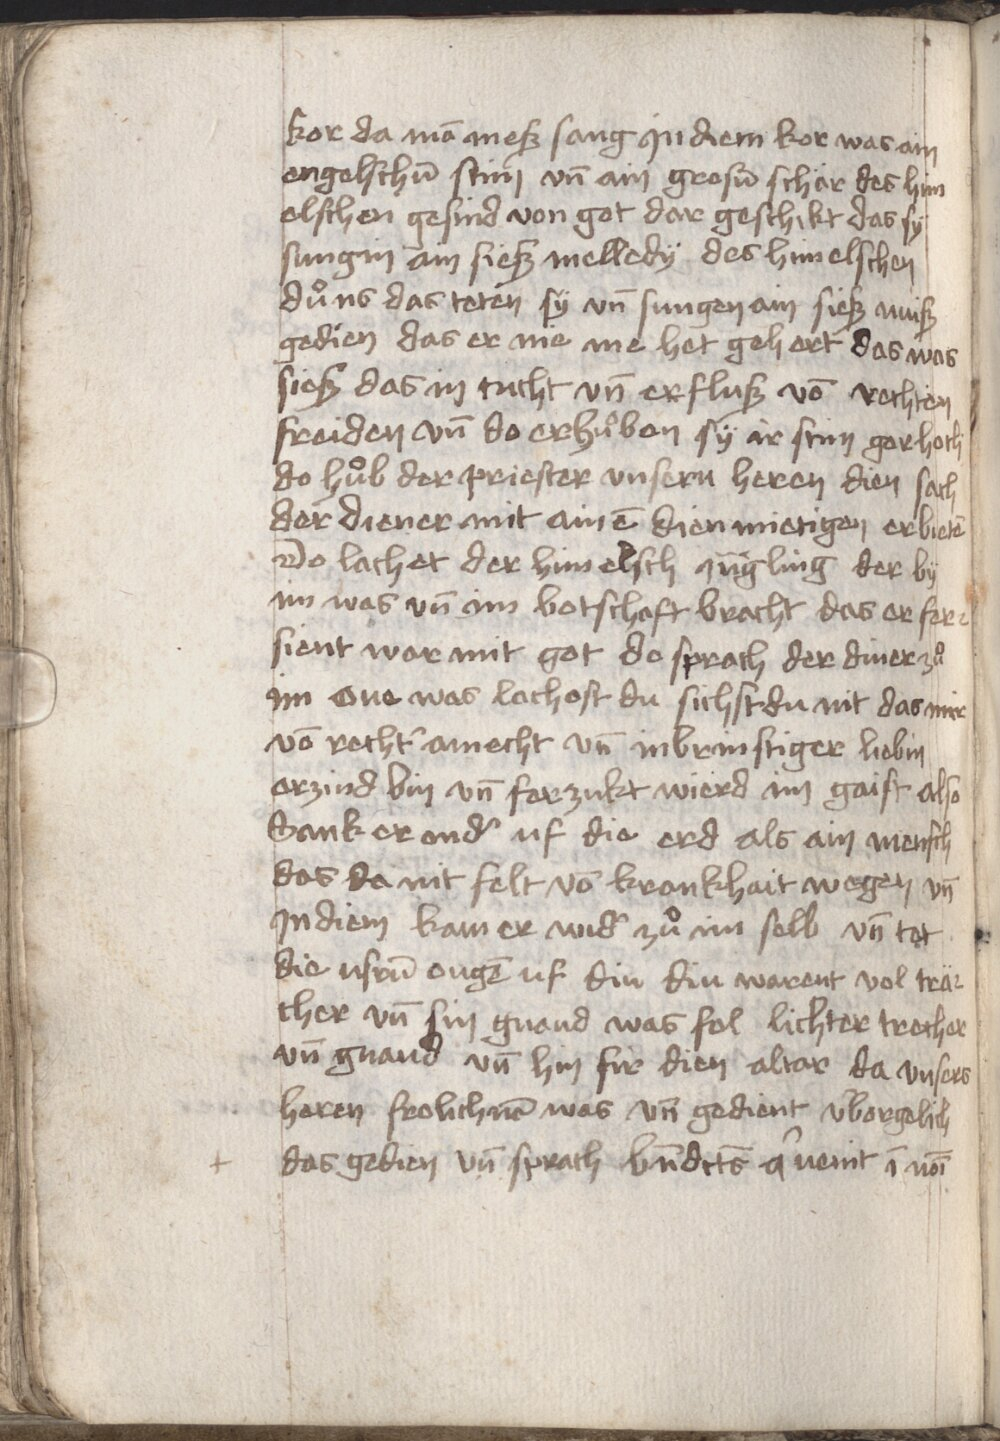 kor da mā meß sang Jn diem kor was ain
engelschū stim vn̄ ain grosū schar des him
elschen gesind von got dar geschikt das sy
sungin ain sieß melledÿ des himelschen
důns das teten sÿ vn̄ sungen ain sieß muiß
gedien das er nie me het gehert das was
sieß das in tucht vn̄ er fluß vō rechten
freiden vn̄ do erhůben sÿ ir stim gar hoch
do hůb der priester vnsern heren dien sach
der diener mit ainē dienmietigen erbietē
Do lachet der himelsch iu̅gling der bÿ
im was vn̄ im botschaft bracht das er fer=
sient wor mit got do sprach der diner zů
im Oue was lachost du sichst du nit das mir
vō recht' amecht vn̄ inbrinstiger liebin
erzind bin vn̄ ferzukt wierd im gaist also
Sank er and' uf die erd als ain mensch
das da nit felt vō krankhait wegen vn̄
Jn diem kam er wid' zů im selb vn̄ tet
die usrū ougē uf diu diu warent vol trä=
cher vn̄ sin gnand was fol lichter trecher
vn̄ gnand vn̄ hin fir dien altar da vnsers
heren frolichnā was vn̄ gedient vborgelich
+ das gedien vn̄ sprach bn̄dcts̄ q venit ī noī